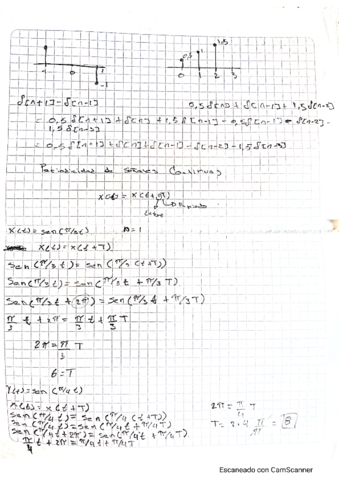 0,5 1 1,5
-1 0 1
-1
0 1 2 3
δ[n+1] - δ[n-1]
0,5δ[n] + δ[n-1] + 1,5δ[n-2]
= 0,5δ[n+1] + δ[n] + 1,5δ[n-1] - 0,5δ[n-1] - δ[n-2] -
1,5δ[n-3]
= 0,5δ[n+1] + δ[n] + δ[n-1] - δ[n-2] - 1,5δ[n-3]
Periodicidad de señales Continuas
x(t) = x(t+nT)
Periodo
Entero
x(t) = sen(π/3t) n=1
x(t) = x(t+T)
sen(π/3 t) = sen(π/3 (t+T))
Sen(π/3 t) = sen(π/3 t + π/3 T)
Sen(π/3 t + 2π) = Sen(π/3 t + π/3 T)
π/3 t + 2π = π/3 t + π/3 T
2π = π/3 T
6 = T
Y(t) = sen(π/4 t)
x(t) = x(t+T)
2π = π/4 T
sen(π/4 t) = sen(π/4 (t+T))
sen(π/4 t) = sen(π/4 t + π/4 T)
sen(π/4 t + 2π) = sen(π/4 t + π/4 T)
π/4 t + 2π = π/4 t + π/4 T
Escaneado con CamScanner